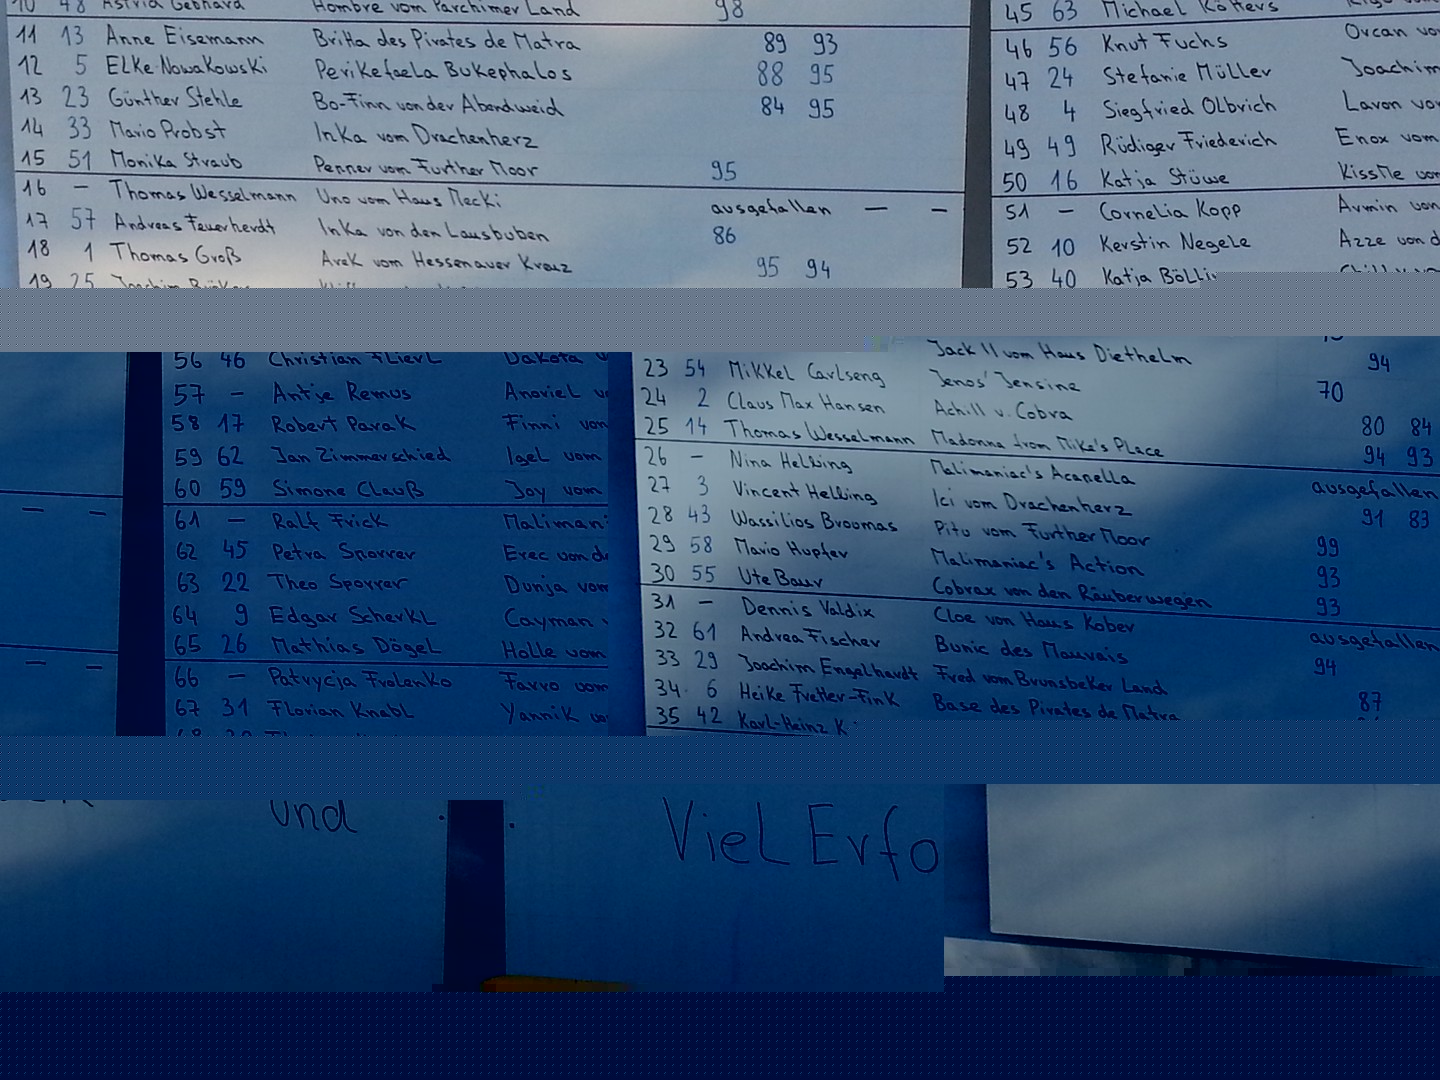 10 48 Astrid Gebhard Hombre vom Parchimer Land 98
11 13 Anne Eisemann Britta des Pirates de Matra 89 93
12 5 Elke Nowakowski Perikefaela Bukephalos 88 95
13 23 Günther Stehle Bo-Finn von der Abendweid 84 95
14 33 Mario Probst Inka vom Drachenherz
15 51 Monika Straub Penner vom Further Moor 95
16 — Thomas Wesselmann Uno vom Haus Mecki ausgefallen — —
17 57 Andreas Feuerherdt Inka von den Lausbuben 86
18 1 Thomas Groß Arek vom Hessenauer Kreuz 95 94
19 25 Joachim
45 63 Michael Kötters
46 56 Knut Fuchs Orcan vo
47 24 Stefanie Müller Joachim
48 4 Siegfried Olbrich Lavon vo
49 49 Rüdiger Friederich Enox vom
50 16 Katja Stüwe KissMe von
51 — Cornelia Kopp Armin von
52 10 Kerstin Negele Azze von d
53 40 Katja Bölli
56 46 Christian Flierl Dakota v
57 — Antje Remus Anoriel v
58 17 Robert Parak Finni von
59 62 Jan Zimmerschied Igel vom
60 59 Simone Clauß Joy vom
— — 61 — Ralf Frick Maliman
62 45 Petra Sporrer Erec von d
63 22 Theo Sporrer Dunja vom
64 9 Edgar Scherkl Cayman v
65 26 Mathias Dögel Holle vom
— — 66 — Patrycja Frolenko Farro vom
67 31 Florian Knabl Yannik vo
Jack II vom Haus Diethelm
23 54 Mikkel Carlseng Jenos' Jensine 94
24 2 Claus Max Hansen Achill v. Cobra 70
25 14 Thomas Wesselmann Madonna from Mike's Place 80 84
26 — Nina Helbing Malimaniac's Acapella 94 93
27 3 Vincent Helbing Ici vom Drachenherz ausgefallen
28 43 Wassilios Broomas Pitu vom Further Moor 91 83
29 58 Mario Hupfer Malimaniac's Action 99
30 55 Ute Baur Cobrax von den Räuberwegen 93
31 — Dennis Valdix Cloe von Haus Kober 93
32 61 Andrea Fischer Bunic des Mauvais ausgefallen
33 29 Joachim Engelhardt Fred vom Brunsbeker Land 94
34 6 Heike Fretter-Fink Base des Pirates de Matra 87
35 42 Karl-Heinz K
und
Viel Erfo